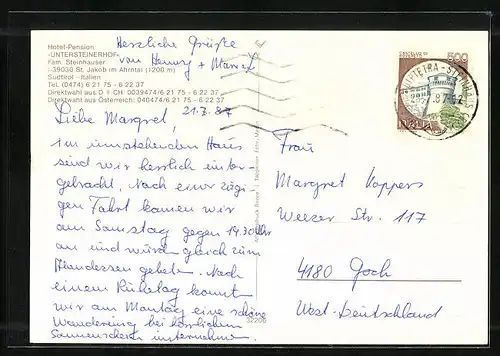 Hotel-Pension
»UNTERSTEINERHOF«
Fam. Steinhauser
I-39030 St. Jakob im Ahrntal (1200 m)
Südtirol - Italien
Tel. (0474) 6 21 75 - 6 22 37
Direktwahl aus D + CH 0039474/6 21 75 - 6 22 37
Direktwahl aus Österreich: 040474/6 21 75 - 6 22 37
Herzliche Grüße
von Henny +
21.7.87
Liebe Margret,
im umstehenden Haus
sind wir herrlich unter-
gebracht. Nach einer zügi-
gen Fahrt kamen wir
am Samstag gegen 19.30 Uhr
an und wurden gleich zum
Abendessen gebeten. Nach
einem Ruhetag konnten
wir am Montag eine schöne
Wanderung bei herrlichem
Sonnenschein unternehmen.
32206
500
ITALIA
Frau
Margret Koppers
Weezer Str. 117
4180 Goch
West-Deutschland